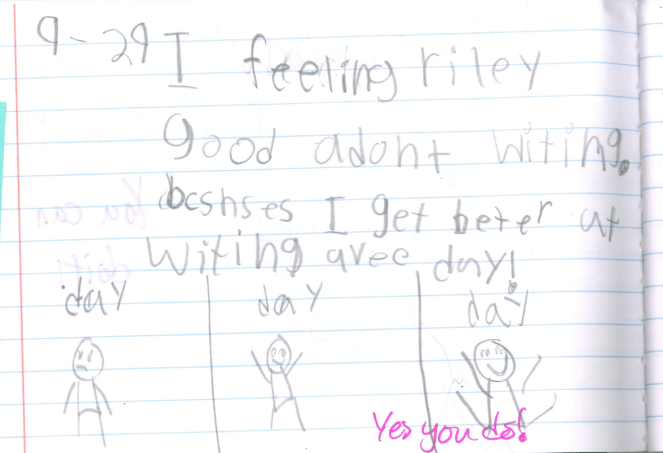 9-29 I feeling riley
good adont witing.
bcshses I get beter at
witing avee day!
day day day
Yes you do!